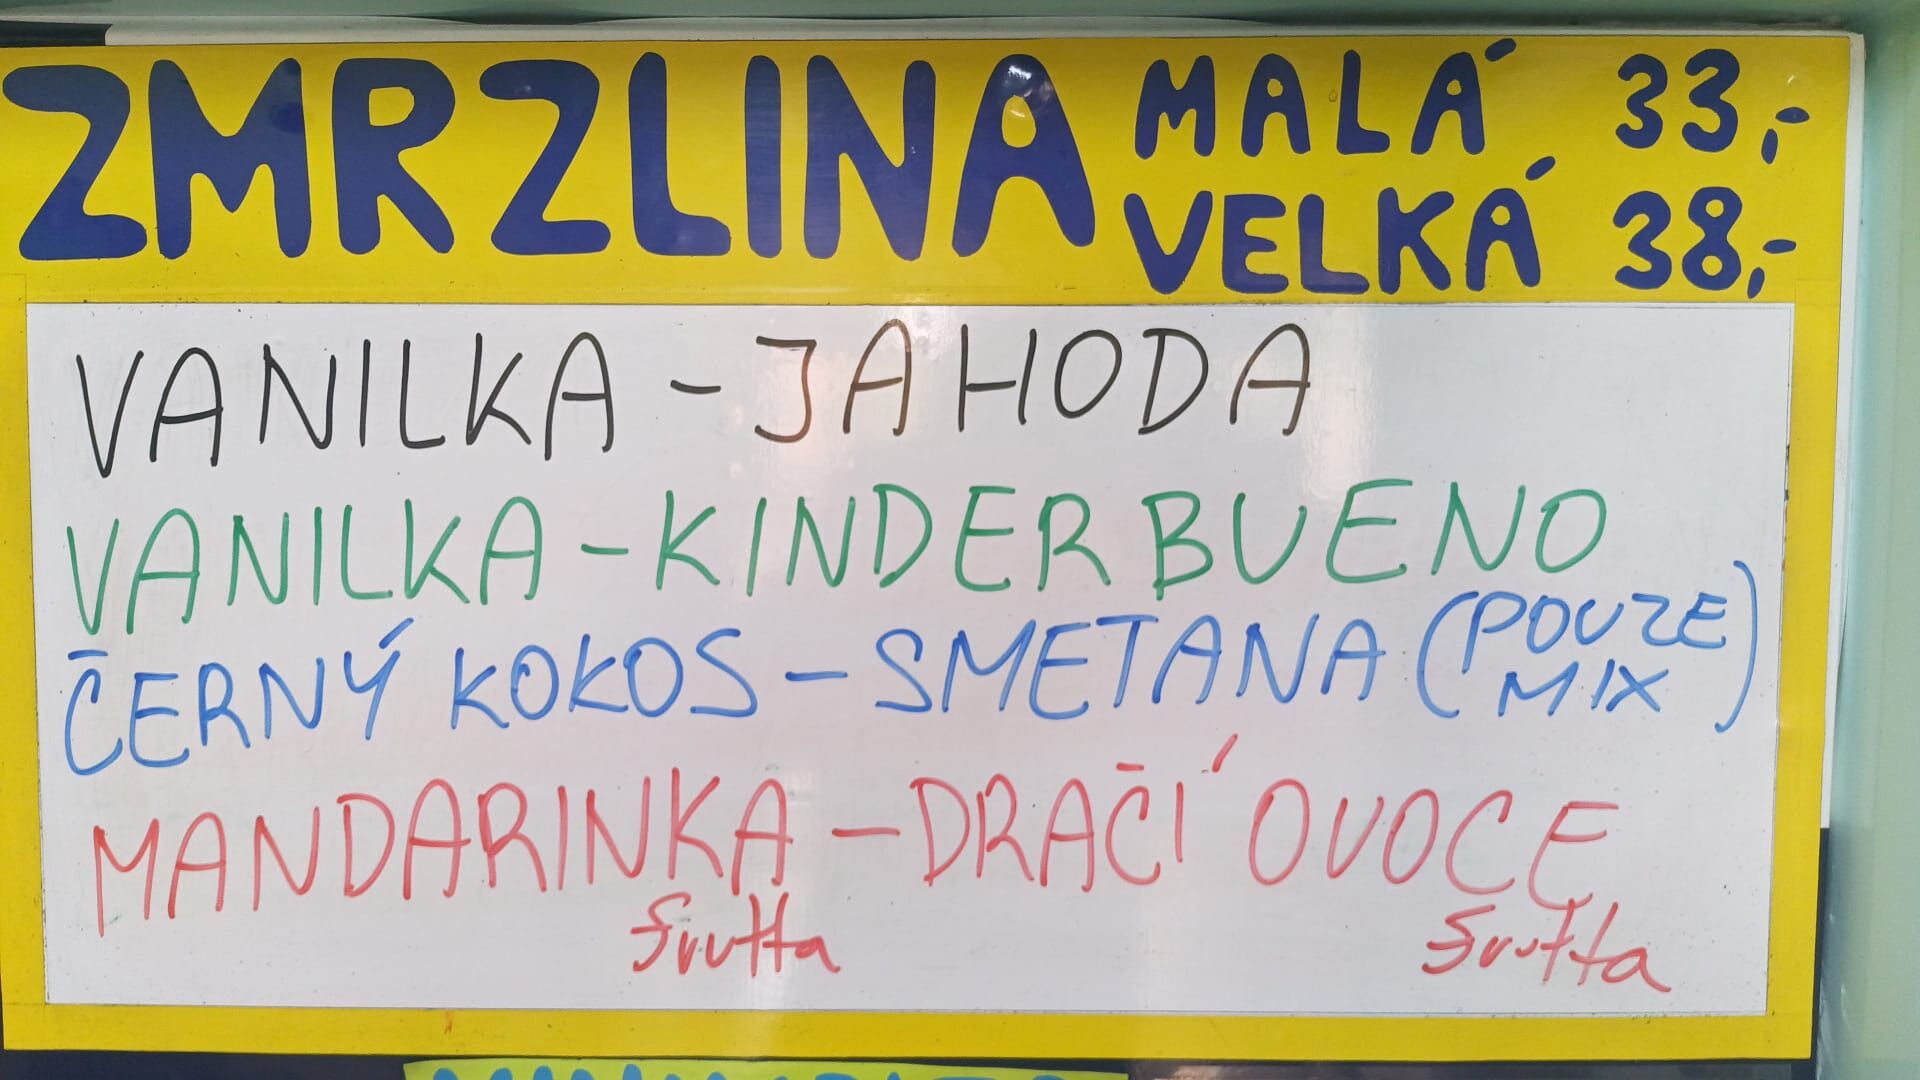 ZMRZLINA MALÁ 33,-
VELKÁ 38,-
VANILKA - JAHODA
VANILKA - KINDER BUENO
ČERNÝ KOKOS - SMETANA (POUZE MIX)
MANDARINKA - DRAČÍ OVOCE
frutta frutta